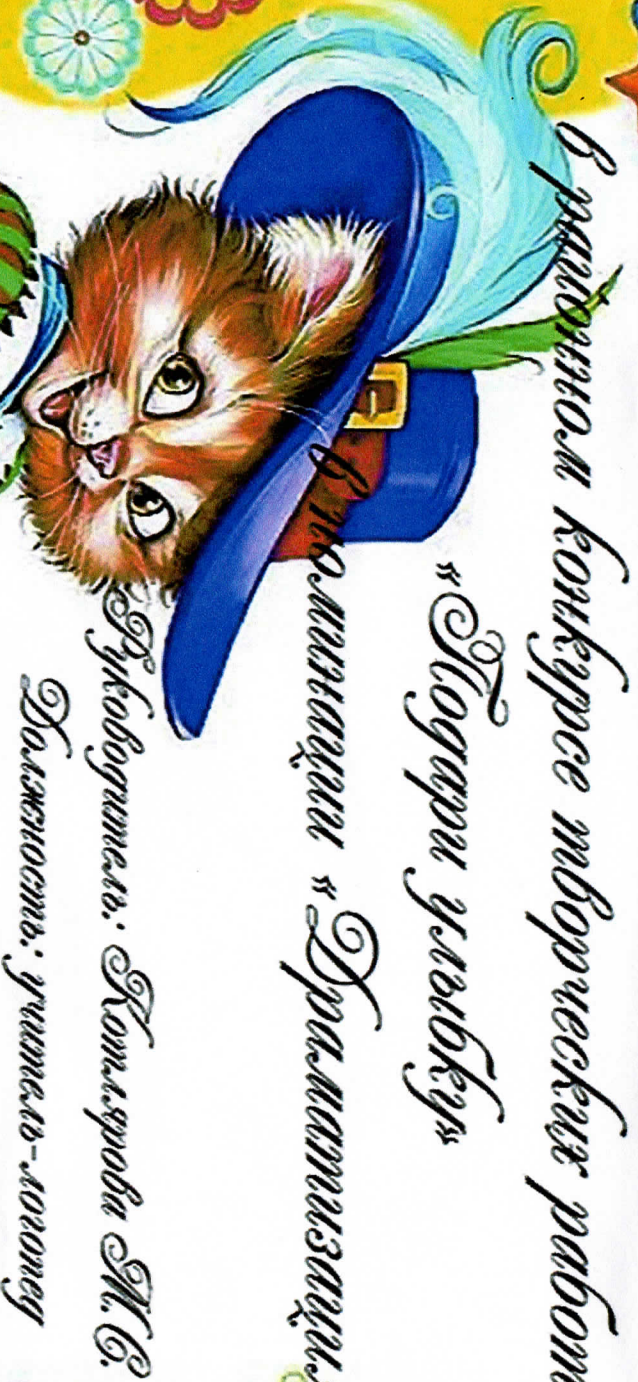 в районном конкурсе творческих работ
«Подари улыбку»
в номинации «Драматизаци
Руководитель: Котлярова М.С.
Должность: учитель-логопед